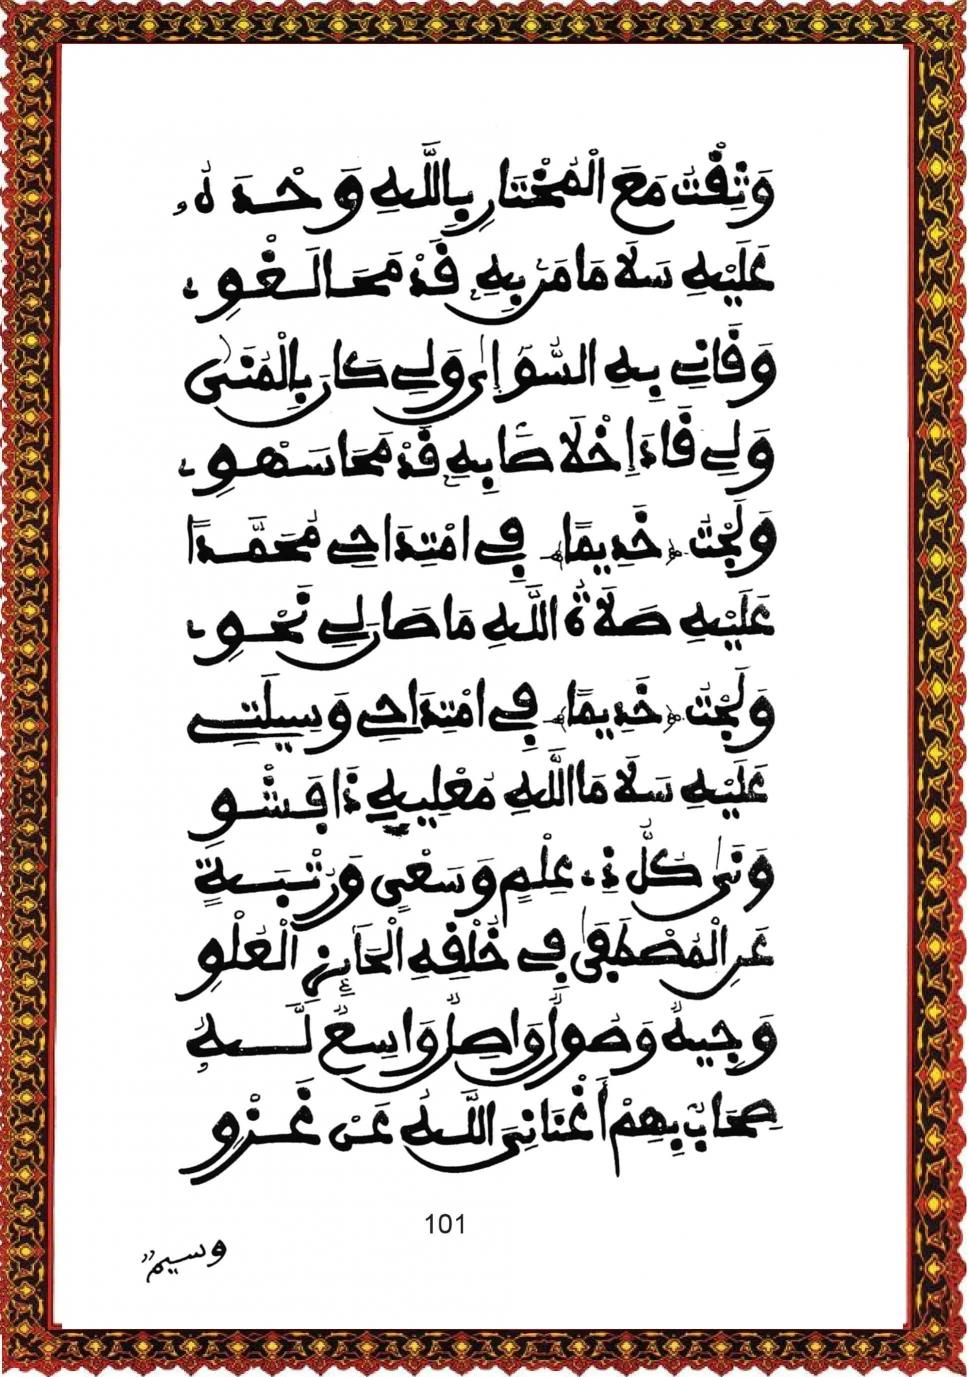 وَثِقْتُ مَعَ الْمُخْتَارِ بِاللَّهِ وَحْدَهُ
عَلَيْهِ سَلَامَا مَنْ بِهِ قَدْ مَحَا لَغْوِ
وَقَانِي بِهِ السُّوأَى وَلِي كَانَ بِالْمُنَى
وَلِي قَادَ إِخْلَاصًا بِهِ قَدْ مَحَا سَهْوِ
وَلَجْتُ ﴿خَدِيمًا﴾ فِي امْتِدَاحِي مُحَمَّدًا
عَلَيْهِ صَلَاةُ اللَّهِ مَا صَارَ لِي نَحْوِ
وَلَجْتُ ﴿خَدِيمًا﴾ فِي امْتِدَاحِي وَسِيلَتِي
عَلَيْهِ سَلَامَا اللَّهِ مُعْلِيهِ ذَا فَشْوِ
وَنَى كُلُّ ذِي عِلْمٍ وَسَعْيٍ وَرُتْبَةٍ
عَنِ الْمُصْطَفَى فِي خُلْقِهِ الْحَائِزِ الْعُلْوِ
وَجِيهٌ وَصُولٌ وَاصِلٌ وَاسِعٌ لَّهُ
صِحَابٌ بِهِمْ أَغْنَانِيَ اللَّهُ عَنْ غَزْوِ
101
وسيم